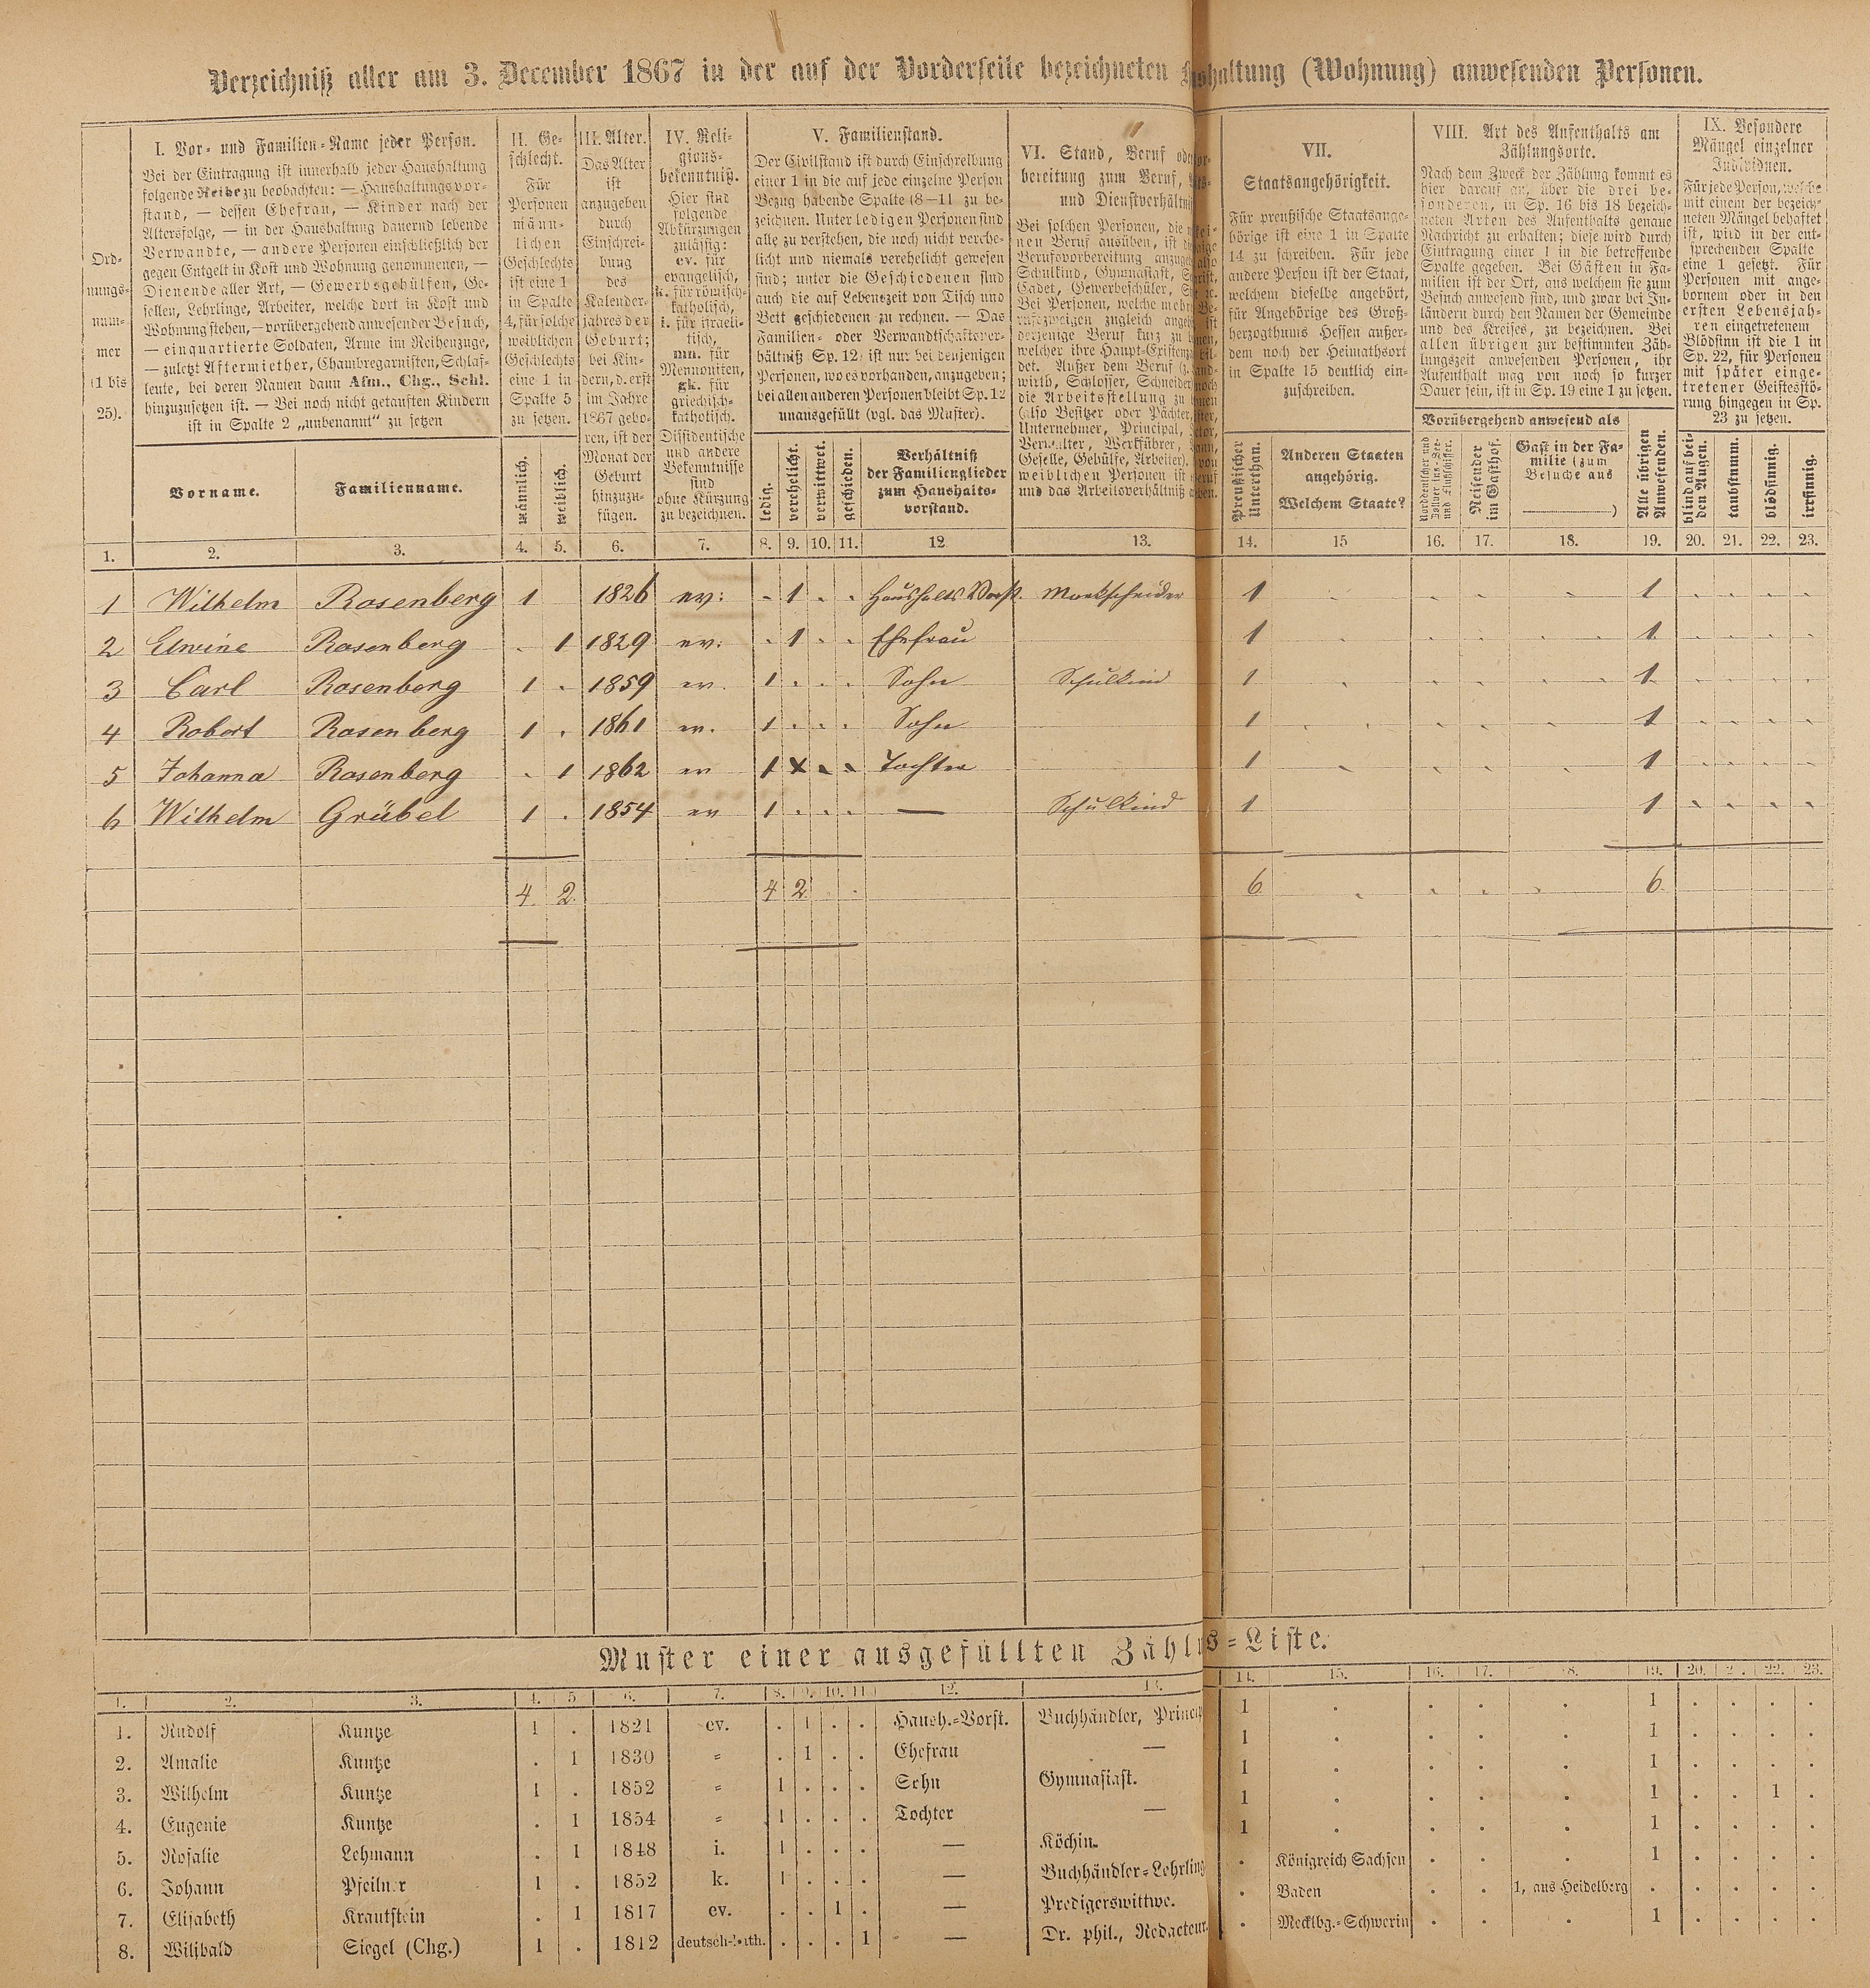 Verzeichniß aller am 3. December 1867 in der auf der Vorderseite bezeichneten haltung (Wohnung) anwesenden Personen.
Ord-
nungs-
num-
mer
(1 bis
25).
I. Vor- und Familien-Name jeder Person.
Bei der Eintragung ist innerhalb jeder Haushaltung
folgende Reihe zu beobachten: — Haushaltungsvor-
stand, — dessen Ehefrau, — Kinder nach der
Altersfolge, — in der Haushaltung dauernd lebende
Verwandte, — andere Personen einschließlich der
gegen Entgelt in Kost und Wohnung genommenen, —
Dienende aller Art, — Gewerbsgehülfen, Ge-
sellen, Lehrlinge, Arbeiter, welche dort in Kost und
Wohnung stehen, — vorübergehend anwesender Besuch,
— einquartierte Soldaten, Arme im Reihenzuge,
— zuletzt Aftermiether, Chambregarnisten, Schlaf-
leute, bei deren Namen dann Afm., Chg., Schl.
hinzuzusetzen ist. — Bei noch nicht getauften Kindern
ist in Spalte 2 „unbenannt“ zu setzen
Vorname.
Familienname.
II. Ge-
schlecht.
Für
Personen
männ-
lichen
Geschlechts
ist eine 1
in Spalte
4, für solche
weiblichen
Geschlechts
eine 1 in
Spalte 5
zu setzen.
männlich.
weiblich.
III. Alter.
Das Alter
ist
anzugeben
durch
Einschrei-
bung
des
Kalender-
jahres der
Geburt;
bei Kin-
dern, d. erst
im Jahre
1867 gebo-
ren, ist der
Monat der
Geburt
hinzuzu-
fügen.
IV. Reli-
gions-
bekenntniß.
Hier sind
folgende
Abkürzungen
zulässig:
ev. für
evangelisch,
k. für römisch-
katholisch,
i. für israeli-
tisch,
mn. für
Mennoniten,
gk. für
griechisch-
katholisch.
Dissidentische
und andere
Bekenntnisse
sind
ohne Kürzung
zu bezeichnen.
V. Familienstand.
Der Civilstand ist durch Einschreibung
einer 1 in die auf jede einzelne Person
Bezug habende Spalte (8—11 zu be-
zeichnen. Unter ledigen Personen sind
alle zu verstehen, die noch nicht verehe-
licht und niemals verehelicht gewesen
sind; unter die Geschiedenen sind
auch die auf Lebenszeit von Tisch und
Bett geschiedenen zu rechnen. — Das
Familien- oder Verwandtschaftsver-
hältniß Sp. 12) ist nur bei denjenigen
Personen, wo es vorhanden, anzugeben;
bei allen anderen Personen bleibt Sp. 12
unausgefüllt (vgl. das Muster).
ledig.
verehelicht.
verwittwet.
geschieden.
Verhältniß
der Familienglieder
zum Haushalts-
vorstand.
VI. Stand, Beruf oder
bereitung zum Beruf,
und Dienstverhältniß
Bei solchen Personen, die
nen Beruf ausüben, ist
Berufsvorbereitung
Schulkind, Gymnasiast,
Cadet, Gewerbeschüler,
Bei Personen, welche
rufszweigen zugleich
derjenige Beruf kurz zu
welcher ihre Haupt-Existenz
det. Außer dem Beruf
wirth, Schlosser, Schneider
die Arbeitsstellung zu
(also Besitzer oder Pächter,
Unternehmer, Principal,
Verwalter, Werkführer,
Geselle, Gehülfe, Arbeiter).
weiblichen Personen ist
und das Arbeitsverhältniß
VII.
Staatsangehörigkeit.
Für preußische Staatsange-
hörige ist eine 1 in Spalte
14 zu schreiben. Für jede
andere Person ist der Staat,
welchem dieselbe angehört,
für Angehörige des Groß-
herzogthums Hessen außer-
dem noch der Heimathsort
in Spalte 15 deutlich ein-
zuschreiben.
Preußischer
Unterthan.
Anderen Staaten
angehörig.
Welchem Staate?
VIII. Art des Aufenthalts am
Zählungsorte.
Nach dem Zweck der Zählung kommt es
hier darauf an, über die drei be-
sonderen, in Sp. 16 bis 18 bezeich-
neten Arten des Aufenthalts genaue
Nachricht zu erhalten; diese wird durch
Eintragung einer 1 in die betreffende
Spalte gegeben. Bei Gästen in Fa-
milien ist der Ort, aus welchem sie zum
Besuch anwesend sind, und zwar bei In-
ländern durch den Namen der Gemeinde
und des Kreises, zu bezeichnen. Bei
allen übrigen zur bestimmten Zäh-
lungszeit anwesenden Personen, ihr
Aufenthalt mag von noch so kurzer
Dauer sein, ist in Sp. 19 eine 1 zu setzen.
Vorübergehend anwesend als
Norddeutscher und
Zollvereins-See-
und Flußschiffer.
Reisender
im Gasthof.
Gast in der Fa-
milie (zum
Besuche aus
)
Alle übrigen
Anwesenden.
IX. Besondere
Mängel einzelner
Individuen.
Für jede Person, welche
mit einem der bezeich-
neten Mängel behaftet
ist, wird in der ent-
sprechenden Spalte
eine 1 gesetzt. Für
Personen mit ange-
bornem oder in den
ersten Lebensjah-
ren eingetretenem
Blödsinn ist die 1 in
Sp. 22, für Personen
mit später einge-
tretener Geistesstö-
rung hingegen in Sp.
23 zu setzen.
blind auf bei-
den Augen.
taubstumm.
blödsinnig.
irrsinnig.
1. 2. 3. 4. 5. 6. 7. 8. 9. 10. 11. 12 13. 14. 15 16. 17. 18. 19. 20. 21. 22. 23.
1 Wilhelm Rosenberg 1 1826 ev: - 1 . . Haushalts Vorst. Markscheider 1 1
2 Elwine Rosenberg . 1 1829 ev. . 1 . . Ehefrau 1 1
3 Carl Rosenberg 1 . 1859 ev. 1 . . . Sohn Schulkind 1 1
4 Robert Rosenberg 1 . 1861 ev. 1 . . . Sohn 1 1
5 Johanna Rosenberg . 1 1862 ev 1 x . . Tochter 1 1
6 Wilhelm Grübel 1 . 1854 ev 1 . . . — Schulkind 1 1
4 2. 4 2 . . 6 6
Muster einer ausgefüllten Zähl s-Liste.
1. 2. 3. 4. 5 6. 7. 8. 9. 10. 11 12. 13. 14. 15. 16. 17. 18. 19. 20. 21. 22. 23.
1. Rudolf Kuntze 1 . 1821 ev. . 1 . . Haush.-Vorst. Buchhändler, Princip 1 . . . . 1 . . . .
2. Amalie Kuntze . 1 1830 = . 1 . . Ehefrau — 1 . . . . 1 . . . .
3. Wilhelm Kuntze 1 . 1852 = 1 . . . Sohn Gymnasiast. 1 . . . . 1 . . . .
4. Eugenie Kuntze . 1 1854 = 1 . . . Tochter — 1 . . . . 1 . . 1 .
5. Rosalie Lehmann . 1 1848 i. 1 . . . — Köchin. 1 . . . . 1 . . . .
6. Johann Pfeilner 1 . 1852 k. 1 . . . — Buchhändler-Lehrling . Königreich Sachsen . . . 1 . . . .
7. Elisabeth Krautstein . 1 1817 ev. . . 1 . — Predigerswittwe. . Baden . . 1, aus Heidelberg . . . . .
8. Wilibald Siegel (Chg.) 1 . 1812 deutsch-kath. . . . 1 — Dr. phil., Redacteur. . Mecklbg.-Schwerin . . . 1 . . . .